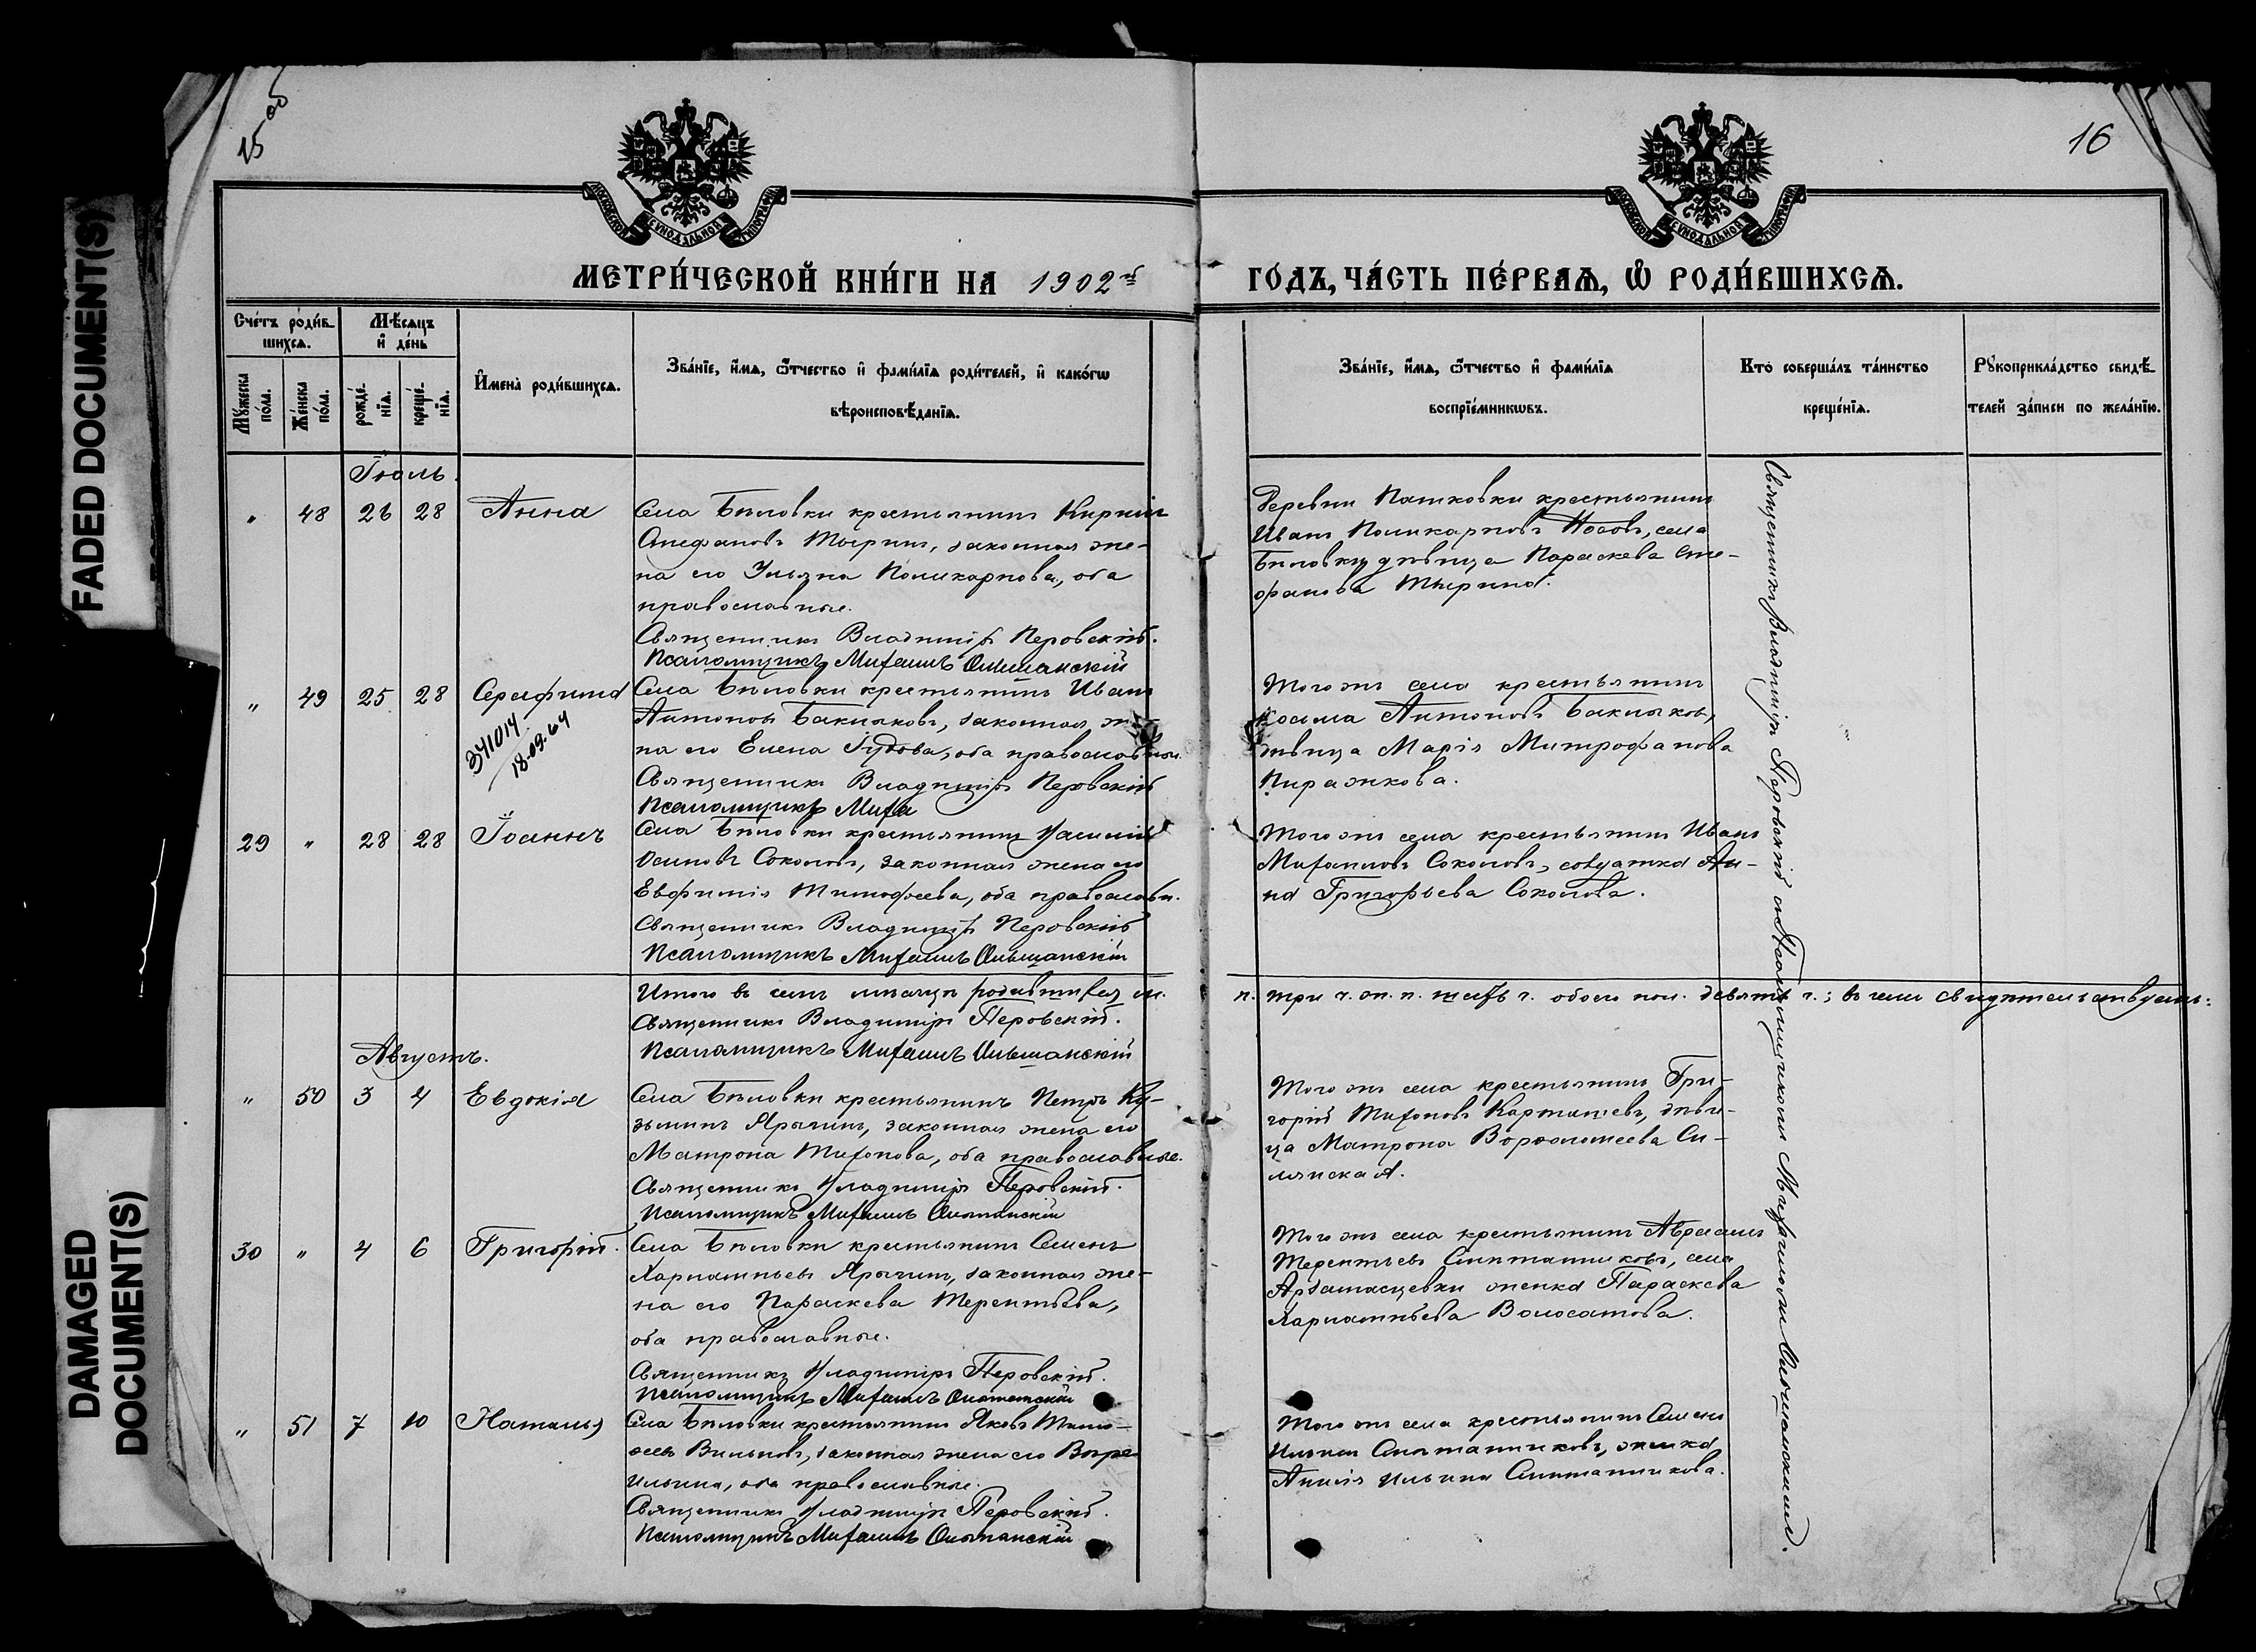 FADED DOCUMENT(S)
DAMAGED
DOCUMENT(S)
15 об
16
МОСКОВСКОЙ СУНОДАЛЬНОЙ ТИПОГРАФІИ
МОСКОВСКОЙ СУНОДАЛЬНОЙ ТИПОГРАФІИ
МЕТРИ́ЧЕСКОЙ КНИ́ГИ НА 1902й ГО́ДЪ, ЧА́СТЬ ПЕ́РВАѦ, Ѡ҆ РОДИ́ВШИХСѦ.
Сче́тъ роди́в-
шихсѧ.
Мѣ́сѧцъ
и҆ де́нь
Мꙋ́жеска
по́ла.
Же́нска
по́ла.
рожде́-
нїѧ.
креще́-
нїѧ.
И҆мена̀ роди́вшихсѧ.
Зва́нїе, и҆́мѧ, ѻ҆́тчество и҆ фами́лїѧ роди́телей, и҆ како́гѡ
вѣроисповѣ́данїѧ.
Зва́нїе, и҆́мѧ, ѻ҆́тчество и҆ фами́лїѧ
воспрїе́мникѡвъ.
Кто̀ соверша́лъ та́инство
креще́нїѧ.
Рꙋкоприкла́дство свидѣ́-
телей за́писи по жела́нїю.
Іюль.
" 48 26 28 Анна
Села Бѣловки крестьянинъ Кириллъ
Стефановъ Тыринъ, законная же-
на его Ульяна Поликарпова, оба
православные.
Священникъ Владиміръ Перовскій.
Псаломщикъ Михаилъ Ольшанскій
Деревни Пашковки крестьянинъ
Иванъ Поликарповъ Носовъ, села
Бѣловки дѣвица Параскева Сте-
фанова Тырина.
" 49 25 28 Серафима
341014
18.09.64
Села Бѣловки крестьянинъ Иванъ
Антоновъ Баклыковъ, законная же-
на его Елена Іудова, оба православные.
Священникъ Владиміръ Перовскій
Псаломщикъ Миха
Того же села крестьянинъ
Косма Антоновъ Баклыковъ,
дѣвица Марія Митрофанова
Пиражкова.
29 " 28 28 Іоаннъ
Села Бѣловки крестьянинъ Василій
Осиповъ Соколовъ, законная жена его
Евфимія Тимофеева, оба православн.
Священникъ Владиміръ Перовскій
Псаломщикъ Михаилъ Ольшанскій
Того же села крестьянинъ Иванъ
Михаиловъ Соколовъ, солдатка Ан-
на Григорьева Соколова.
Итого въ семъ мѣсяцѣ родившихся м. п. три ч. ж. п. шесть ч. обоего пол. девять ч.; въ чемъ свидѣтельствуемъ:
Священникъ Владиміръ Перовскій.
Псаломщикъ Михаилъ Ольшанскій
Августъ.
" 50 3 4 Евдокія
Села Бѣловки крестьянинъ Петръ Ку-
зьминъ Ярыгинъ, законная жена его
Матрона Тихонова, оба православные.
Священникъ Владиміръ Перовскій.
Псаломщикъ Михаилъ Ольшанскій
Того же села крестьянинъ Гри-
горій Тихоновъ Карташевъ, дѣви-
ца Матрона Ворѳоломеева Си-
лянская.
30 " 4 6 Григорій.
Села Бѣловки крестьянинъ Семенъ
Харлампьевъ Ярыгинъ, законная же-
на его Параскева Терентьева,
оба православные.
Священникъ Владиміръ Перовскій.
Псаломщикъ Михаилъ Ольшанскій
Того же села крестьянинъ Авраамъ
Терентьевъ Ситманниковъ, села
женка Параскева
Харлампьева Волосатова.
" 51 7 10 Наталья
Села Бѣловки крестьянинъ Яковъ Тимо-
ѳеевъ законная жена его
Ильина, оба православные.
Священникъ Владиміръ Перовскій.
Псаломщикъ Михаилъ Ольшанскій
Того же села крестьянинъ Семенъ
Ильинъ женка
Ильина
Священникъ Владиміръ Перовскій съ Псаломщикомъ Михаиломъ Ольшанскимъ.